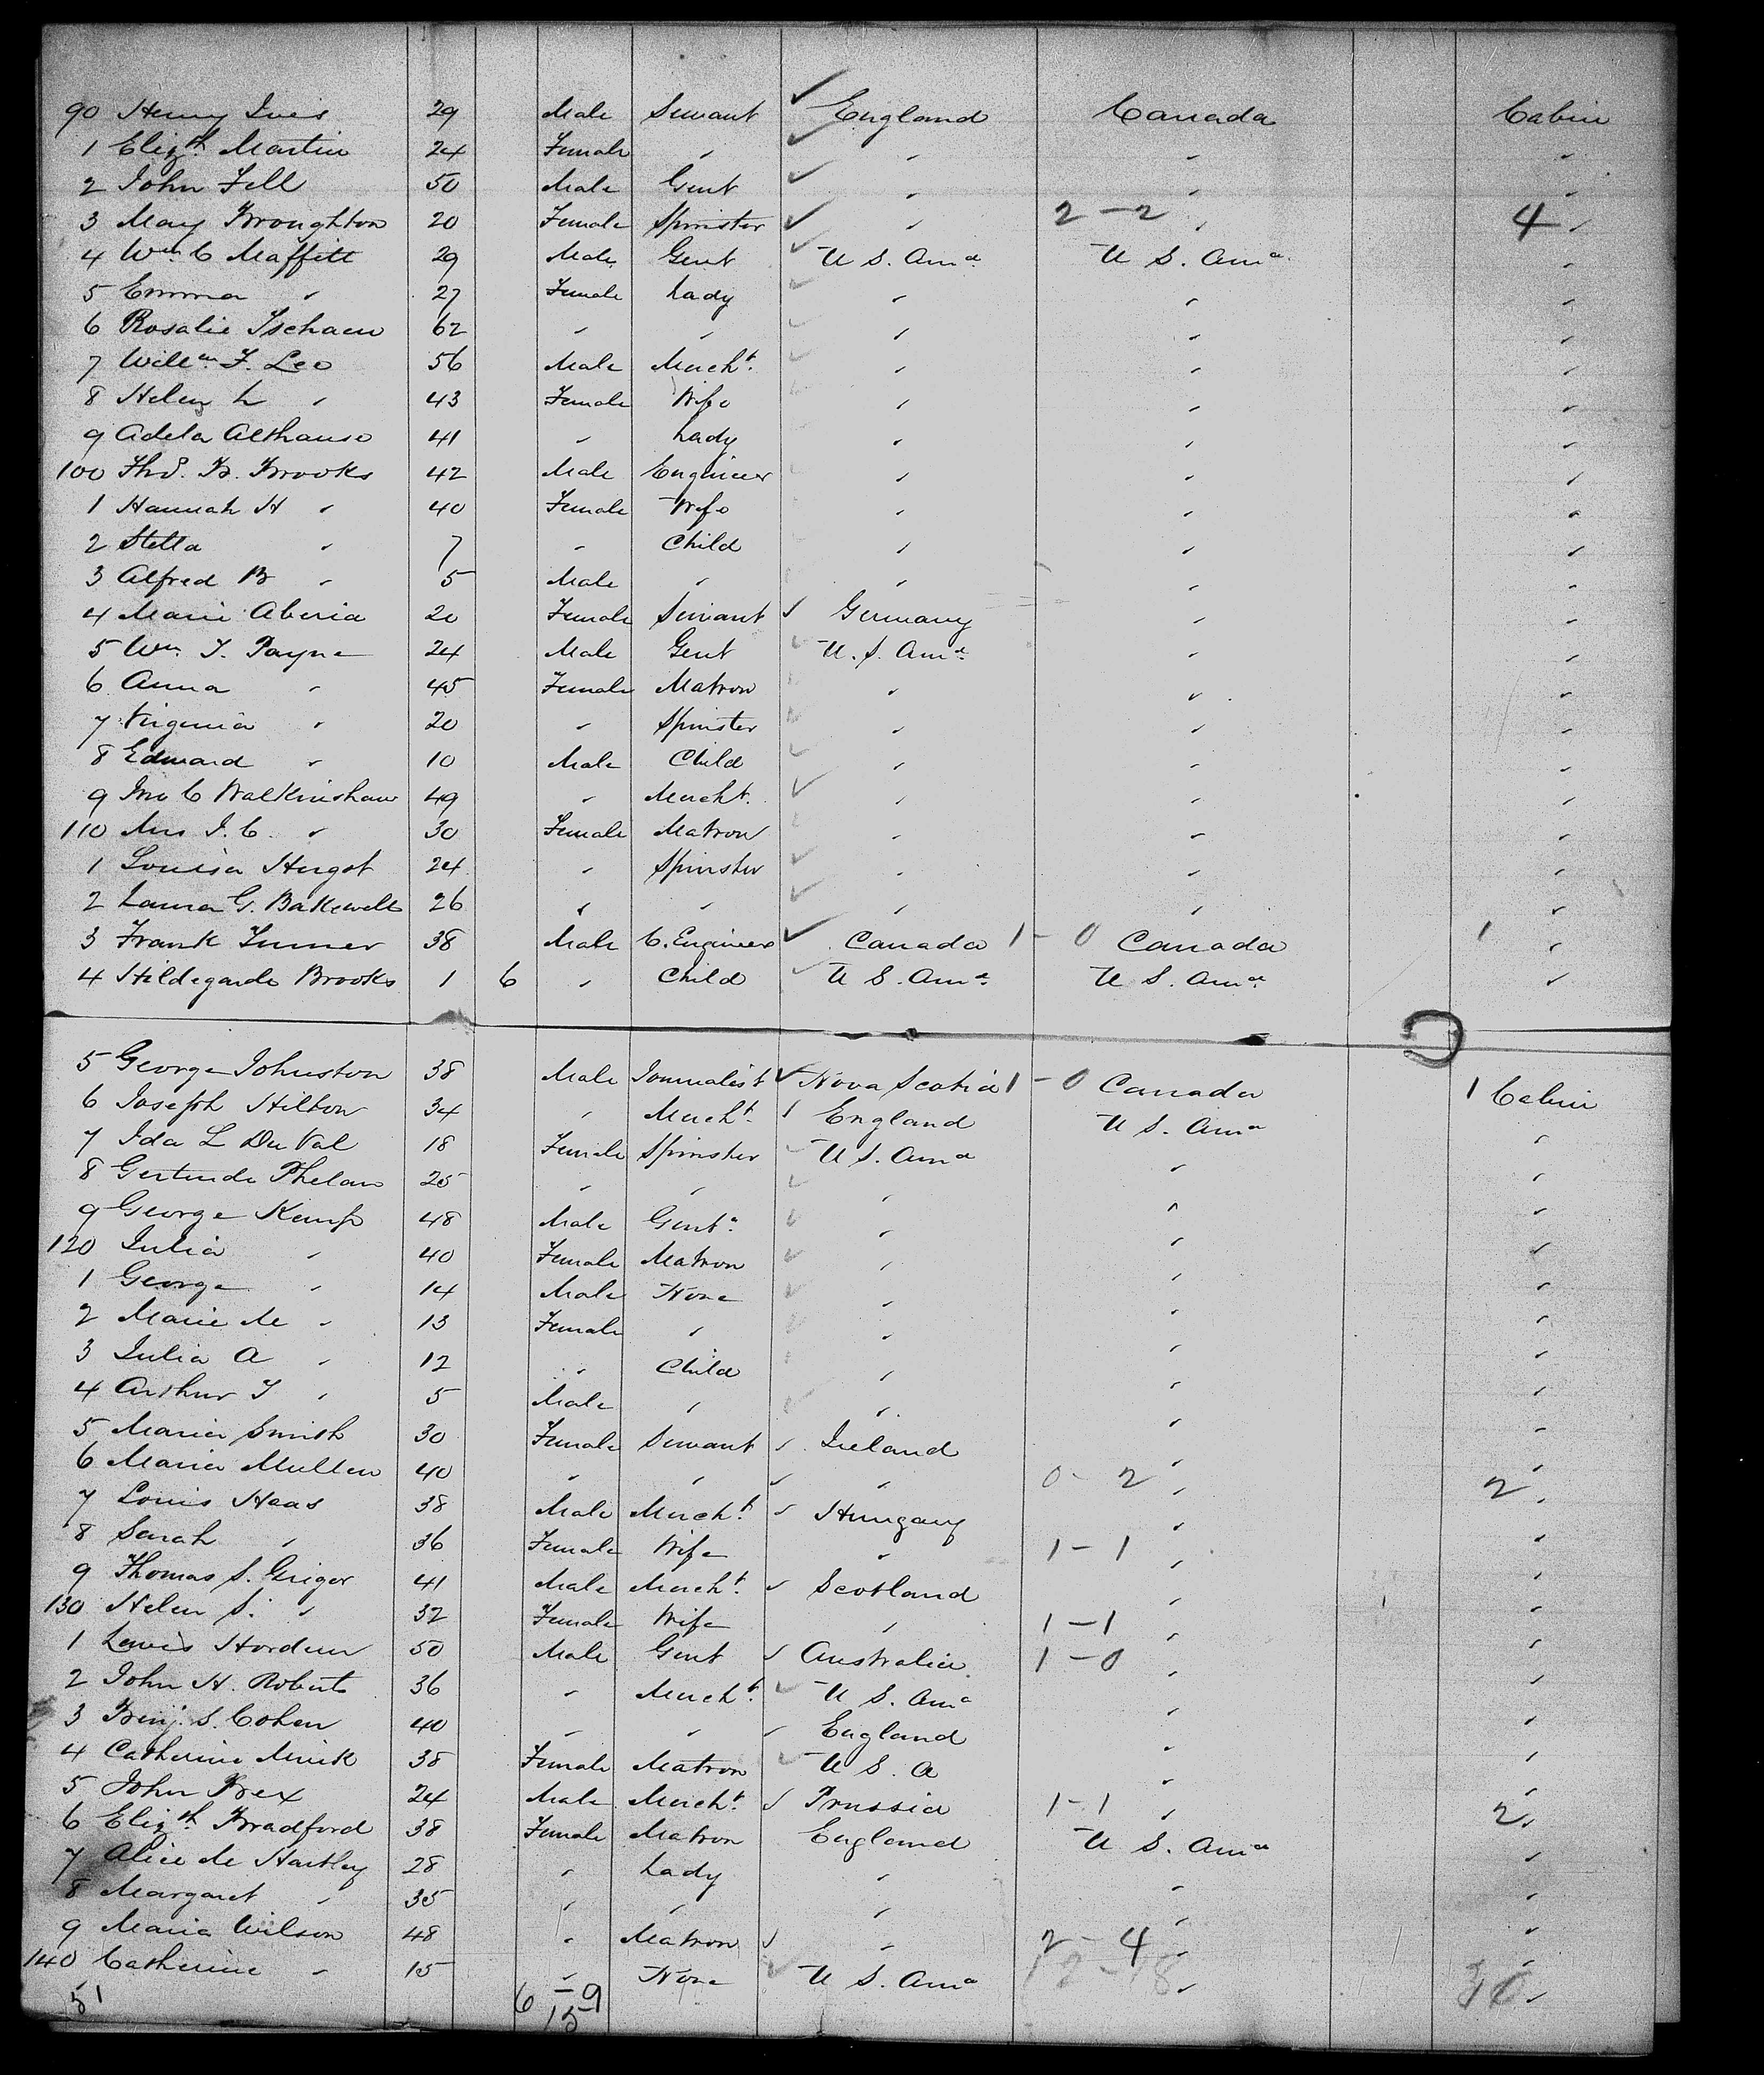 90 Henry Ives 29 Male Servant ✓ England Canada Cabin
1 Elizth Martin 24 Female " ✓ " " "
2 John Fell 50 Male Gent ✓ " " "
3 May Broughton 20 Female Spinster ✓ " 2-2 " 4 "
4 Wm C Maffitt 29 Male Gent ✓ U S. Ama U S. Ama "
5 Emma " 27 Female Lady ✓ " " "
6 Rosalie 62 " " ✓ " " "
7 Willm F. Leo 56 Male Mercht. ✓ " " "
8 Helen L " 43 Female Wife " " "
9 Adela Althause 41 " Lady " " "
100 Thos. B. Brooks 42 Male Engineer " " "
1 Hannah H " 40 Female Wife " " "
2 Stella " 7 " Child " " "
3 Alfred B " 5 Male " " " "
4 Marie Aberia 20 Female Servant ✓ Germany " "
5 Wm. T. Payne 24 Male Gent ✓ U. S. Ama " "
6 Anna " 45 Female Matron " " "
7 Virginia " 20 " Spinster " " "
8 Edward " 10 Male Child ✓ " " "
9 Jno C Walkinshaw 49 " Mercht. ✓ " " "
110 Mrs J. C. " 30 Female Matron ✓ " " "
1 Louisa 24 " Spinster ✓ " " "
2 Laura G. Bakewell 26 " " ✓ " " "
3 Frank Turner 38 Male C. Engineer ✓ Canada 1-0 Canada 1 "
4 Hildegarde Brooks 1 6 " Child ✓ U S. Ama U S. Ama "
5 George Johnston 38 Male Journalist ✓ Nova Scotia 1-0 Canada 1 Cabin
6 Joseph Hilton 34 " Mercht. ✓ England U S. Ama "
7 Ida L Du Val 18 Female Spinster ✓ U S. Ama " "
8 Gertrude Phelan 25 " " ✓ " " "
9 George Kemp 48 Male Gent. ✓ " " "
120 Julia " 40 Female Matron ✓ " " "
1 George " 14 Male None ✓ " " "
2 Marie M " 13 Female " ✓ " " "
3 Julia A " 12 " Child " " "
4 Arthur T " 5 Male " ✓ " " "
5 Maria Smith 30 Female Servant ✓ Ireland " "
6 Maria Mullen 40 " " ✓ " 0-2 " 2 "
7 Louis Haas 38 Male Mercht. ✓ Hungary " "
8 Sarah " 36 Female Wife " 1-1 " "
9 Thomas S. Grigor 41 Male Mercht. ✓ Scotland " "
130 Helen S. " 32 Female Wife " 1-1 " "
1 Lewis Hordern 50 Male Gent ✓ Australia 1-0 " "
2 John H. Roberts 36 " Mercht. ✓ U S. Ama " "
3 Benj. S. Cohen 40 " " ✓ England " "
4 Catherine 38 Female Matron ✓ U S. A " "
5 John Brex 24 Male Mercht. ✓ Prussia 1-1 " 2 "
6 Elizth Bradford 38 Female Matron England U S. Ama "
7 Alice M Hartley 28 " Lady " " "
8 Margaret " 35 " " " " "
9 Maria Wilson 48 " Matron ✓ " 2-4 " "
140 Catherine " 15 " None ✓ U S. Ama " "
51 6-9
15